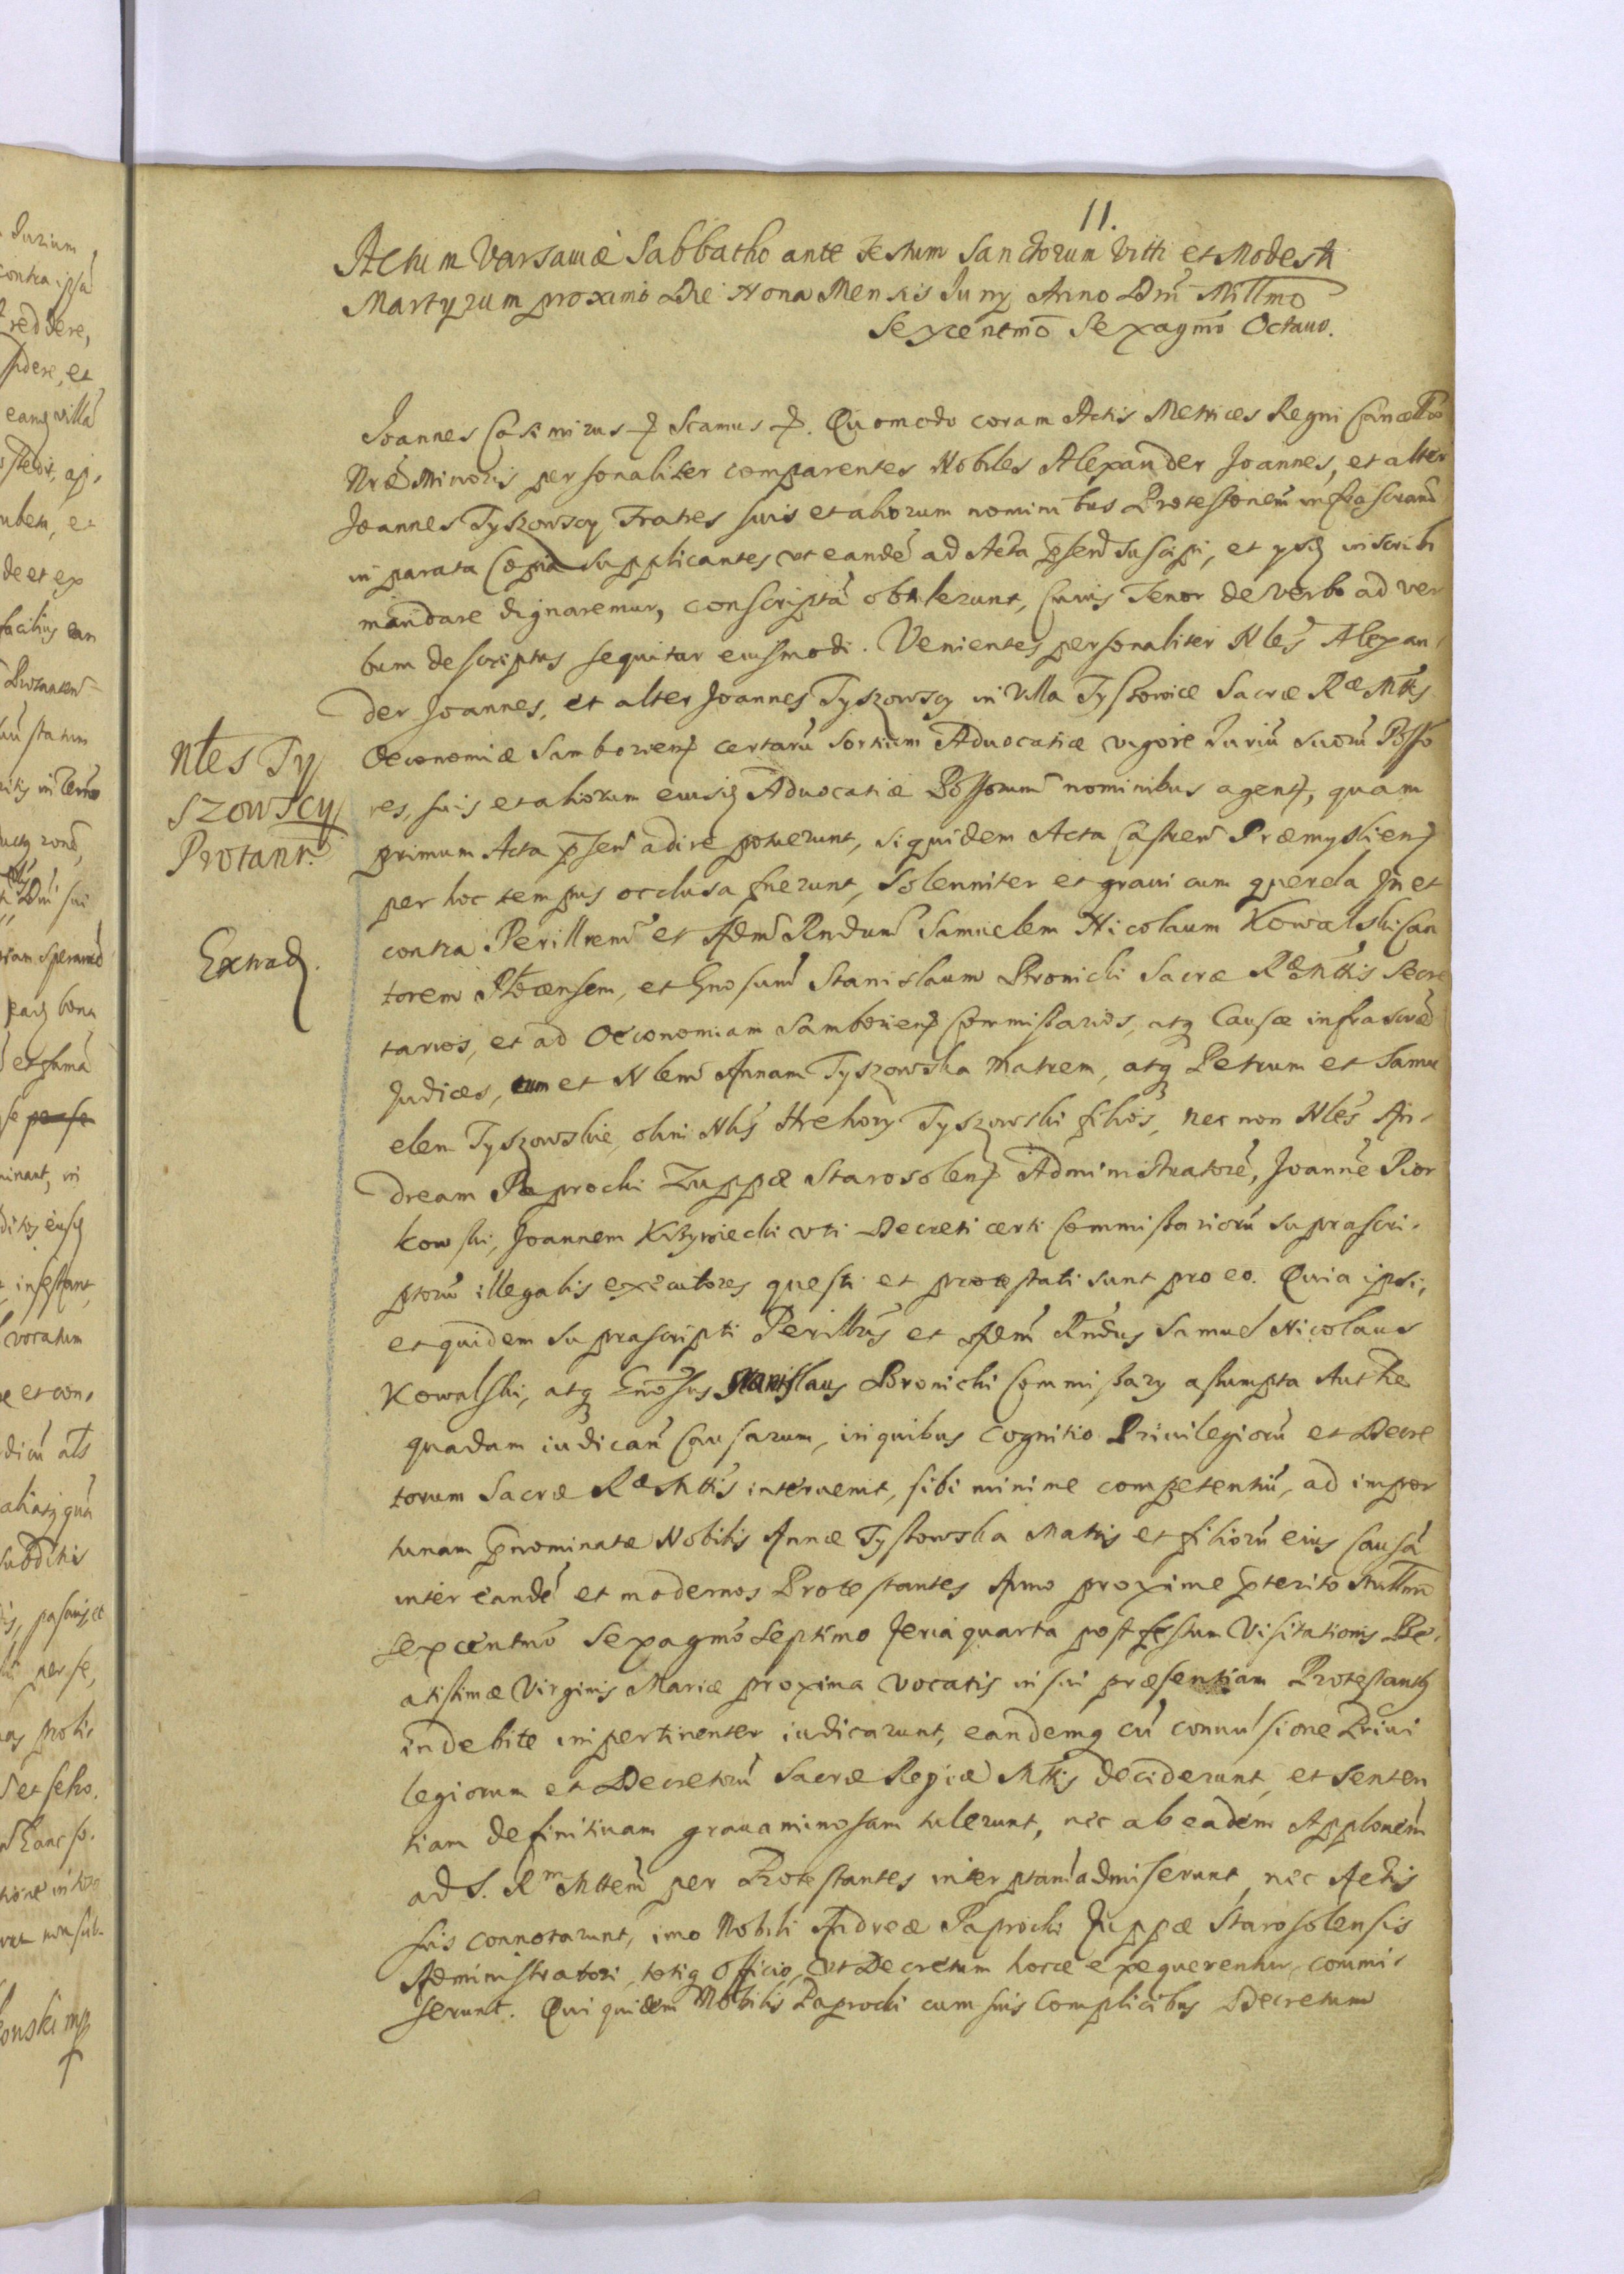 11.
Actum Varsaviæ Sabbatho ante Festum Sanctorum Viti et Modesti
Martyrum proximo Die Nona Mensis Juny Anno Dni Millmo
Sexcentmo Sexagmo Octavo.
Joannes Casimirus Scamus. Quomodo coram Actis Metrices Regni Cancellæ
Nræ Minoris personaliter comparentes Nobiles Alexander Joannes, et alter
Joannes Tyszowscy Fratres suis et aliorum nominibus Protestonem infrascriptam
in parata Copia supplicantes ut eandé ad Acta pnsentia suscipi, et ysdem inscribi
mandare dignaremur, conscriptá obtulerunt, Cuius Tenor de verbo ad ver
bum descriptus sequitur eiusmodi. Venientes personaliter Nles Alexan-
der Joannes, et alter Joannes Tyszowscy in Villa Tyszowice Sacræ Ræ Mttis
Oeconomiæ Samborien certarú Sortium Advocatiæ vigore Juriú suorú Posso
res, suis et aliorum eiusdem Advocatiæ Possorum nominibus agentes, quam
primum Acta pnsentia adire potuerunt, siquidem Acta Castren Præmyslien
per hoc tempus occlusa fuerunt, Solenniter et gravi cum querela In et
contra Perillrem et Adm Rndum Samuelem Nicolaum Kowalski Can
torem Plocensem, et Gnosum Stanislaum Bronicki Sacræ Ræ Mttis Secre
tarios, et ad Oeconomiam Samborien Commissarios, atq Causæ infrascriptæ
Judices, tum et Nlem Annam Tyszowska Matrem, atq Petrum et Samu
elem Tyszowskie, olim Nlis Hrehory Tyszowski filios, nec non Nles An-
dream Paprocki Zuppæ Starosolen Administratoré, Joanné Pior
kowski, Joannem Krzywiecki uti Decreti certi Commissariorú suprascri-
ptorú illegalis executores questi et protestati sunt pro eo. Quia ipsi,
et quidem suprascripti Perillris et Adm Rndus Samuel Nicolaus
Kowalski, atq Gnosus Stanislaus Bronicki Commissary assumpta Authe
quadam iudican Causarum, in quibus Cognitio Privilegiorú et Decre
torum Sacræ Ræ Mttis intervenit, sibi minime competentiú, ad impor
tunam pnominatæ Nobilis Annæ Tyszowska Matris et filiorú eius Causá
inter eandé et modernos Protestantes Anno proxime pterito Millmo
Sexcentmo Sexagmo Septimo Feria quarta post festum Visitationis Be-
atissimæ Virginis Mariæ proxima vocatis in sui præsentiam Protestantibus
indebite impertinenter iudicarunt, eandemq cú convulsione Privi
legiorum et Decretorú Sacræ Regiæ Mttis deciderunt, et Senten
tiam definitivam gravaminosam tulerunt, nec ab eadem Applonem
ad S. Rm Mttem per Protestantes interptam admiserunt, nec Actis
suis connotarunt, imo Nobili Andreæ Paprocki Zuppæ Starosolensis
Administratori, totiq Officio, ut Decretum hocce exequerentur, commi-
serunt. Qui quidem Nobilis Paprocki cum suis Complicibus Decretum
Nles Ty
szowscy
Protant.
Extrad.